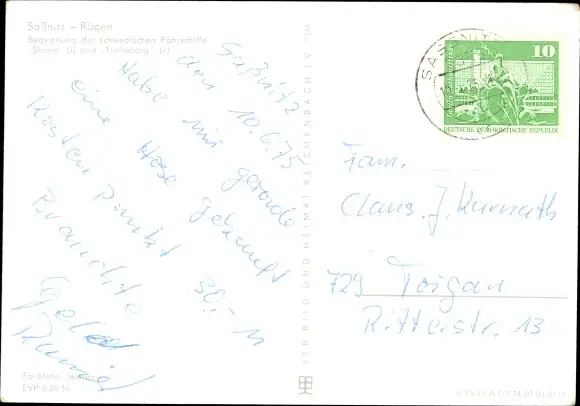 Saßnitz – Rügen
Begegnung der schwedischen Fährschiffe
„Skåne" (l) und „Trelleborg" (r)
Saßnitz
den 10.6.75
Habe mir gerade
eine Hose gekauft
Kosten Punkt 30,- M
Brauchte
Farbfoto:
EVP 0,20 M
VEB BILD UND HEIMAT REICHENBACH I. V.
SASSNITZ
10
DEUTSCHE DEMOKRATISCHE REPUBLIK
Fam.
Claus. J. Kurnath
729 Torgau
Ritterstr. 13